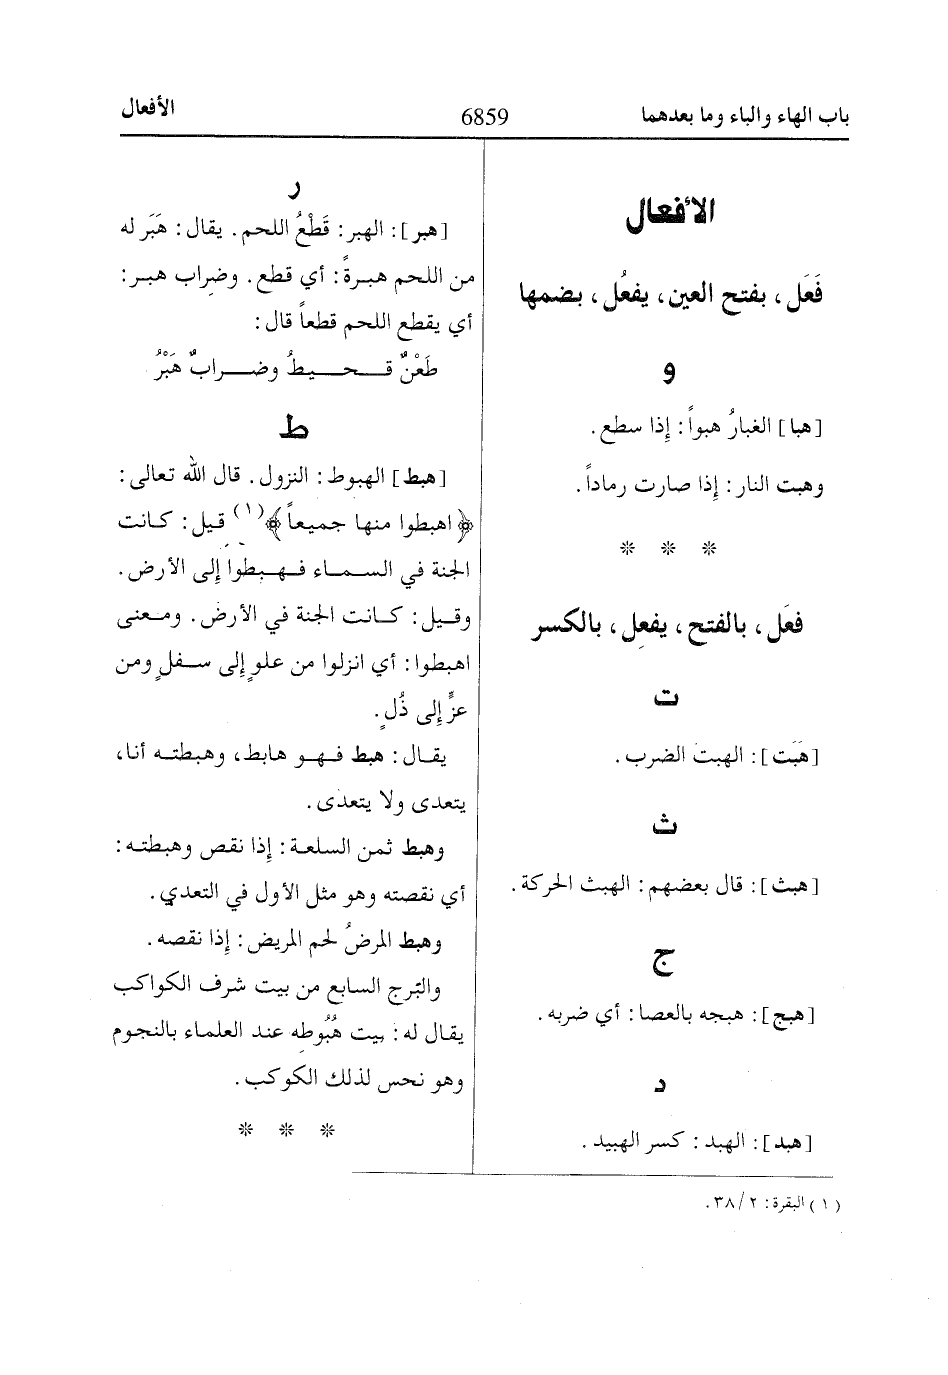 باب الهاء والباء وما بعدهما
6859
الأفعال
الأفعال
فَعَل، بفتح العين، يفعُل، بضمها
و
[هبا] الغبارُ هبواً: إذا سطع.
وهبت النار: إذا صارت رماداً.
* * *
فعَل، بالفتح، يفعِل، بالكسر
ت
[هَبَت]: الهبت الضرب.
ث
[هبث]: قال بعضهم: الهبث الحركة.
ج
[هبج]: هبجه بالعصا: أي ضربه.
د
[هبد]: الهبد: كسر الهبيد.
ر
[هبر]: الهبر: قَطْعُ اللحم. يقال: هَبَر له
من اللحم هبرةً: أي قطع. وضراب هبر:
أي يقطع اللحم قطعاً قال:
طَعْنٌ قحيطُ وضرابٌ هَبْرُ
ط
[هبط] الهبوط: النزول. قال الله تعالى:
﴿اهبطوا منها جميعاً﴾(١) قيل: كانت
الجنة في السماء فهبطوا إلى الأرض.
وقيل: كانت الجنة في الأرض. ومعنى
اهبطوا: أي انزلوا من علوٍ إلى سفلٍ ومن
عزٍّ إلى ذُلٍ.
يقال: هبط فهو هابط، وهبطته أنا،
يتعدى ولا يتعدى.
وهبط ثمن السلعة: إذا نقص وهبطته:
أي نقصته وهو مثل الأول في التعدي.
وهبط المرضُ لحم المريض: إذا نقصه.
والبرج السابع من بيت شرف الكواكب
يقال له: بيت هُبُوطِه عند العلماء بالنجوم
وهو نحس لذلك الكوكب.
* * *
(١) البقرة: ٢/ ٣٨.